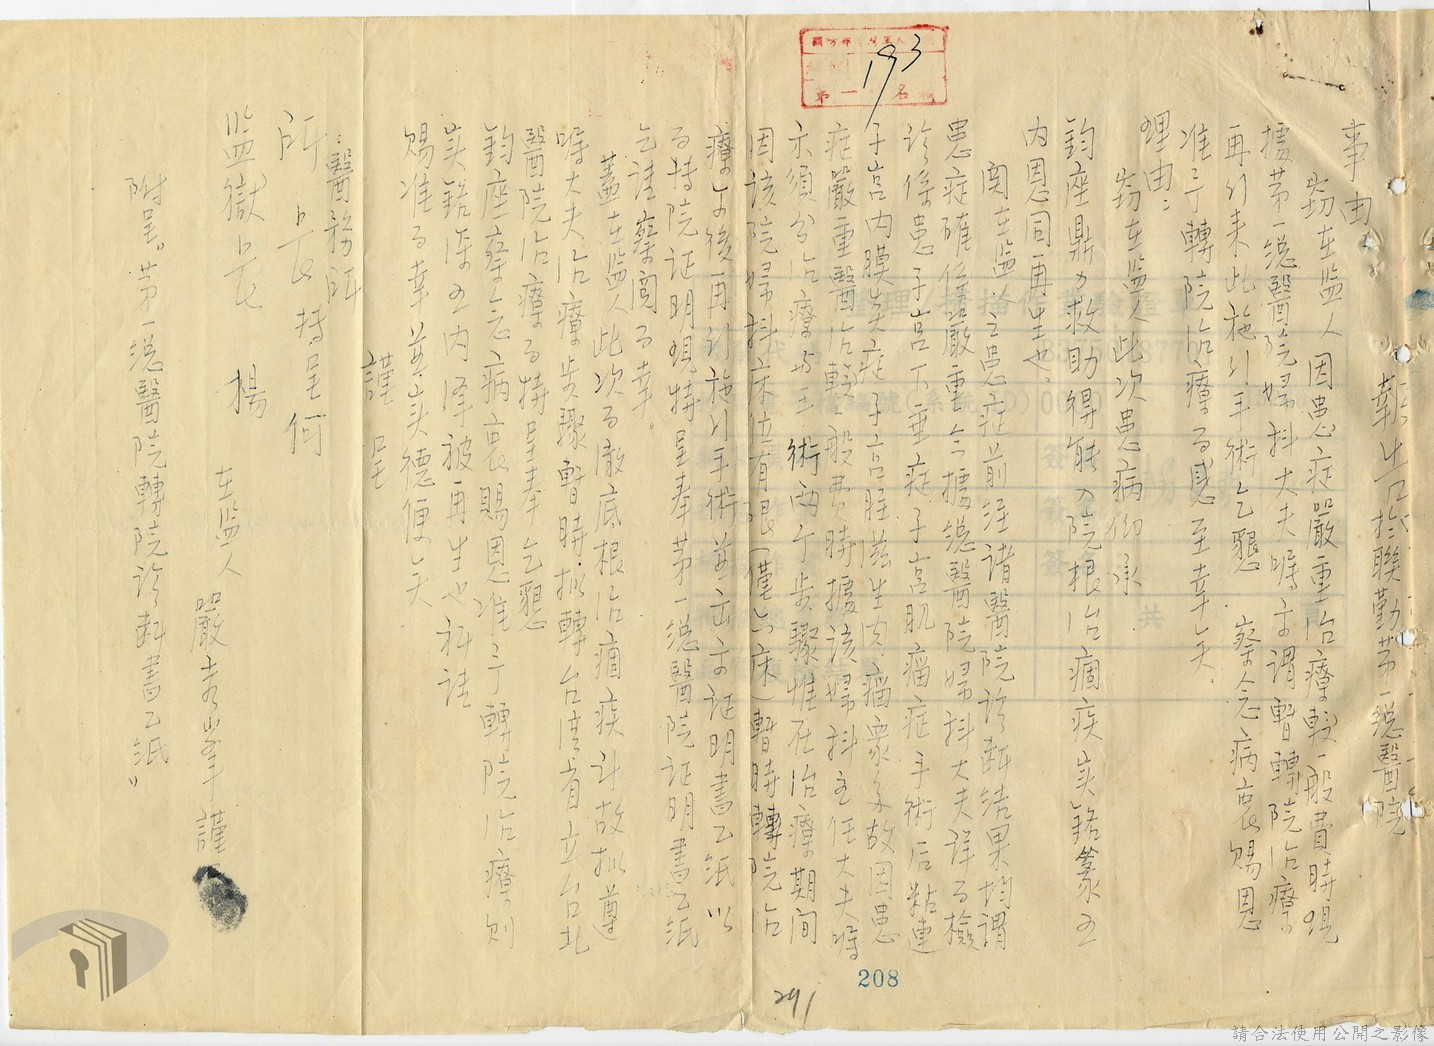 報告 於聯勤第一總醫院
事由
竊在監人因患症嚴重治療較一般費時現
據第一總醫院婦科大夫囑方謂暫轉院治療。
再行來此施行手術乞懇 察念病衷賜恩
准予轉院治療為感至幸矣。
理由：
竊在監人此次患病仰承
鈞座鼎力救助得能入院根治痼疾
內恩同再生也。
閱在監
患症前經諸醫院診斷結果均謂
患症確係嚴重今據總醫院婦科大夫詳為檢
診係患子宮下垂症子宮肌瘤症手術后粘連
子宮內膜炎症子宮腔滋生肉瘤眾多故因患
症嚴重醫治較一般費時據該婦科主任大夫囑
示須分治療與手術兩个步驟惟在治療期間
因該院婦科床位有限（僅六床）暫時轉院治
療以後再行施行手術並立方証明書乙紙以
為特院証明現特呈奉第一總醫院証明書乙紙
乞請察閱為幸。
蓋在監人此次為澈底根治痼疾計故擬遵
囑大夫治療步驟暫時擬轉台灣省立台北
醫院治療為特呈奉乞懇
鈞座察念病衷賜恩准予轉院治療則
內澤被再生也祈請
賜准為幸
德便矣
謹呈
：醫務所
所長 特呈何
監獄長 楊
在監人 嚴秀峯謹
附呈。第一總醫院轉院診斷書乙紙〃
第一 名
193
208
291
請合法使用公開之影像